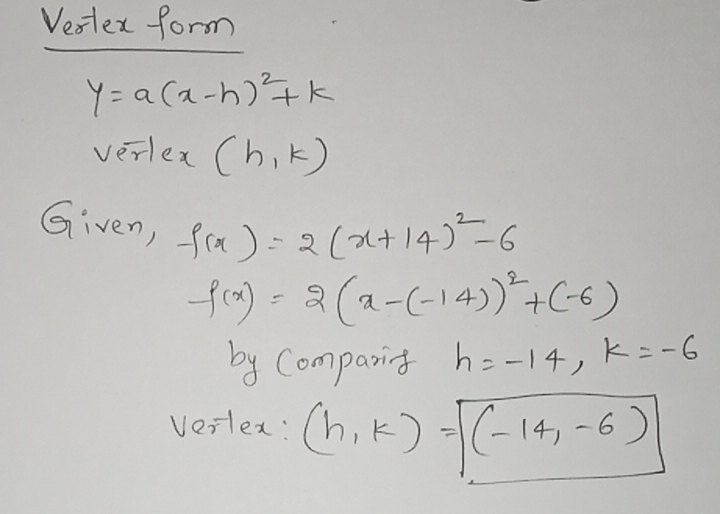 Vertex form
y = a(x-h)²+k
vertex (h,k)
Given, f(x) = 2(x+14)²-6
f(x) = 2(x-(-14))²+(-6)
by Comparing h=-14, k=-6
Vertex: (h,k) = (-14,-6)